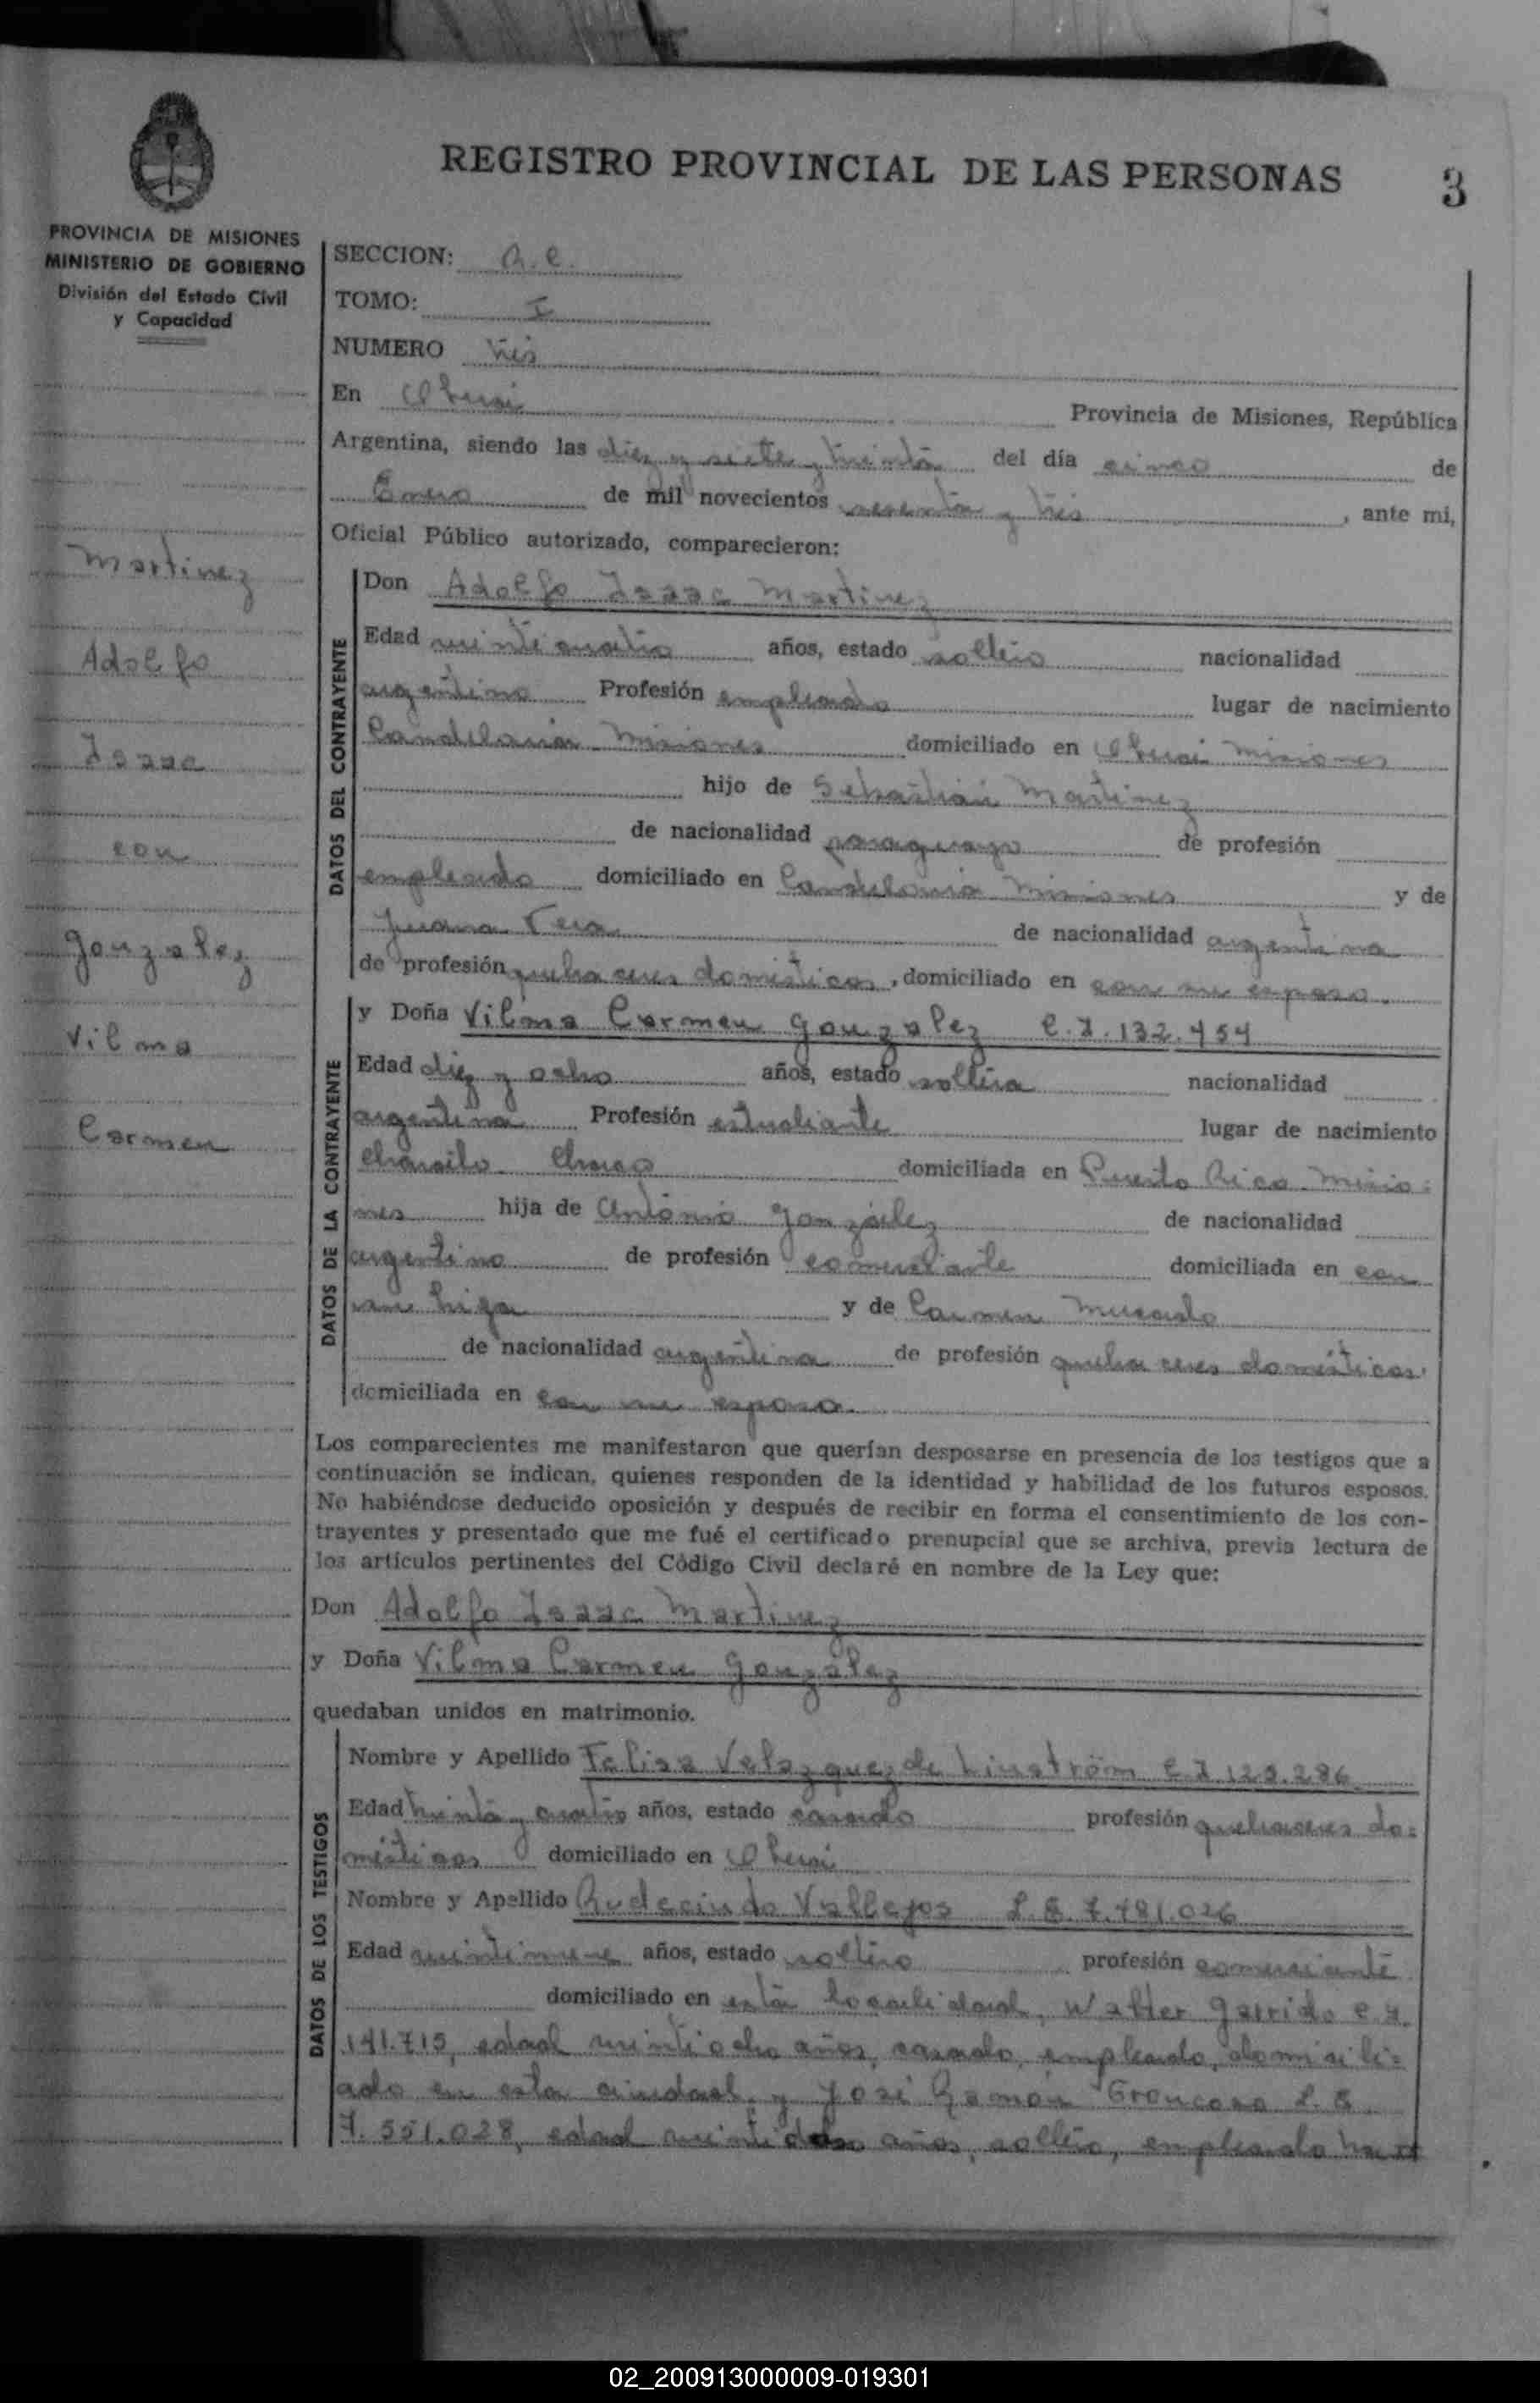 REGISTRO PROVINCIAL DE LAS PERSONAS 3
PROVINCIA DE MISIONES
MINISTERIO DE GOBIERNO
División del Estado Civil
y Capacidad
Martinez
Adolfo
Isaac
con
Gonzalez
Vilma
Carmen
SECCION: A.C.
TOMO: I
NUMERO tres
En Oberá Provincia de Misiones, República
Argentina, siendo las diez y siete y treinta del día cinco de
Enero de mil novecientos sesenta y tres, ante mi,
Oficial Público autorizado, comparecieron:
DATOS DEL CONTRAYENTE
Don Adolfo Isaac Martinez
Edad veinticuatro años, estado soltero nacionalidad
argentino Profesión empleado lugar de nacimiento
Candelaria Misiones domiciliado en Oberá Misiones
hijo de Sebastián Martinez
de nacionalidad paraguayo de profesión
empleado domiciliado en Candelaria Misiones y de
Juana Vera de nacionalidad argentina
de profesión quehaceres domésticos, domiciliado en con su esposo.
DATOS DE LA CONTRAYENTE
y Doña Vilma Carmen Gonzalez C.I. 132.454
Edad diez y ocho años, estado soltera nacionalidad
argentina Profesión estudiante lugar de nacimiento
Chaco domiciliada en Puerto Rico Misio=
nes hija de Antonio González de nacionalidad
argentino de profesión comerciante domiciliada en con
su hija y de Carmen
de nacionalidad argentina de profesión quehaceres domésticos
domiciliada en con su esposo.
Los comparecientes me manifestaron que querían desposarse en presencia de los testigos que a
continuación se indican, quienes responden de la identidad y habilidad de los futuros esposos.
No habiéndose deducido oposición y después de recibir en forma el consentimiento de los con-
trayentes y presentado que me fué el certificado prenupcial que se archiva, previa lectura de
los artículos pertinentes del Código Civil declaré en nombre de la Ley que:
Don Adolfo Isaac Martinez
y Doña Vilma Carmen Gonzalez
quedaban unidos en matrimonio.
DATOS DE LOS TESTIGOS
Nombre y Apellido Felisa Velazquez de Linström C.I. 129.286
Edad treinta y cuatro años, estado casado profesión quehaceres do=
mésticos domiciliado en Oberá
Nombre y Apellido Rudecindo Vallejos L.E. 7.481.026
Edad veintinueve años, estado soltero profesión comerciante
domiciliado en esta localidad, Walter Garrido C.I.
141.715, edad veintiocho años, casado, empleado, domicili=
ado en esta ciudad, y José Ramón L.E.
7.551.028, edad veintidos años, soltero, empleado
02_200913000009-019301